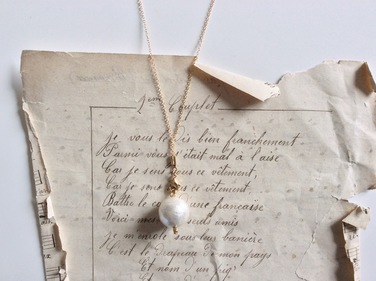 1er Couplet
Je vous le dis bien franchement
vous était mal à l'aise
Car je sens sous ce vêtement,
Car je sens sous ce vêtement,
Battre le une française
Voici mes seuls amis
Je m'enrôle sous leur bannière
C'est le Drapeau de mon pays
Et nom d'un